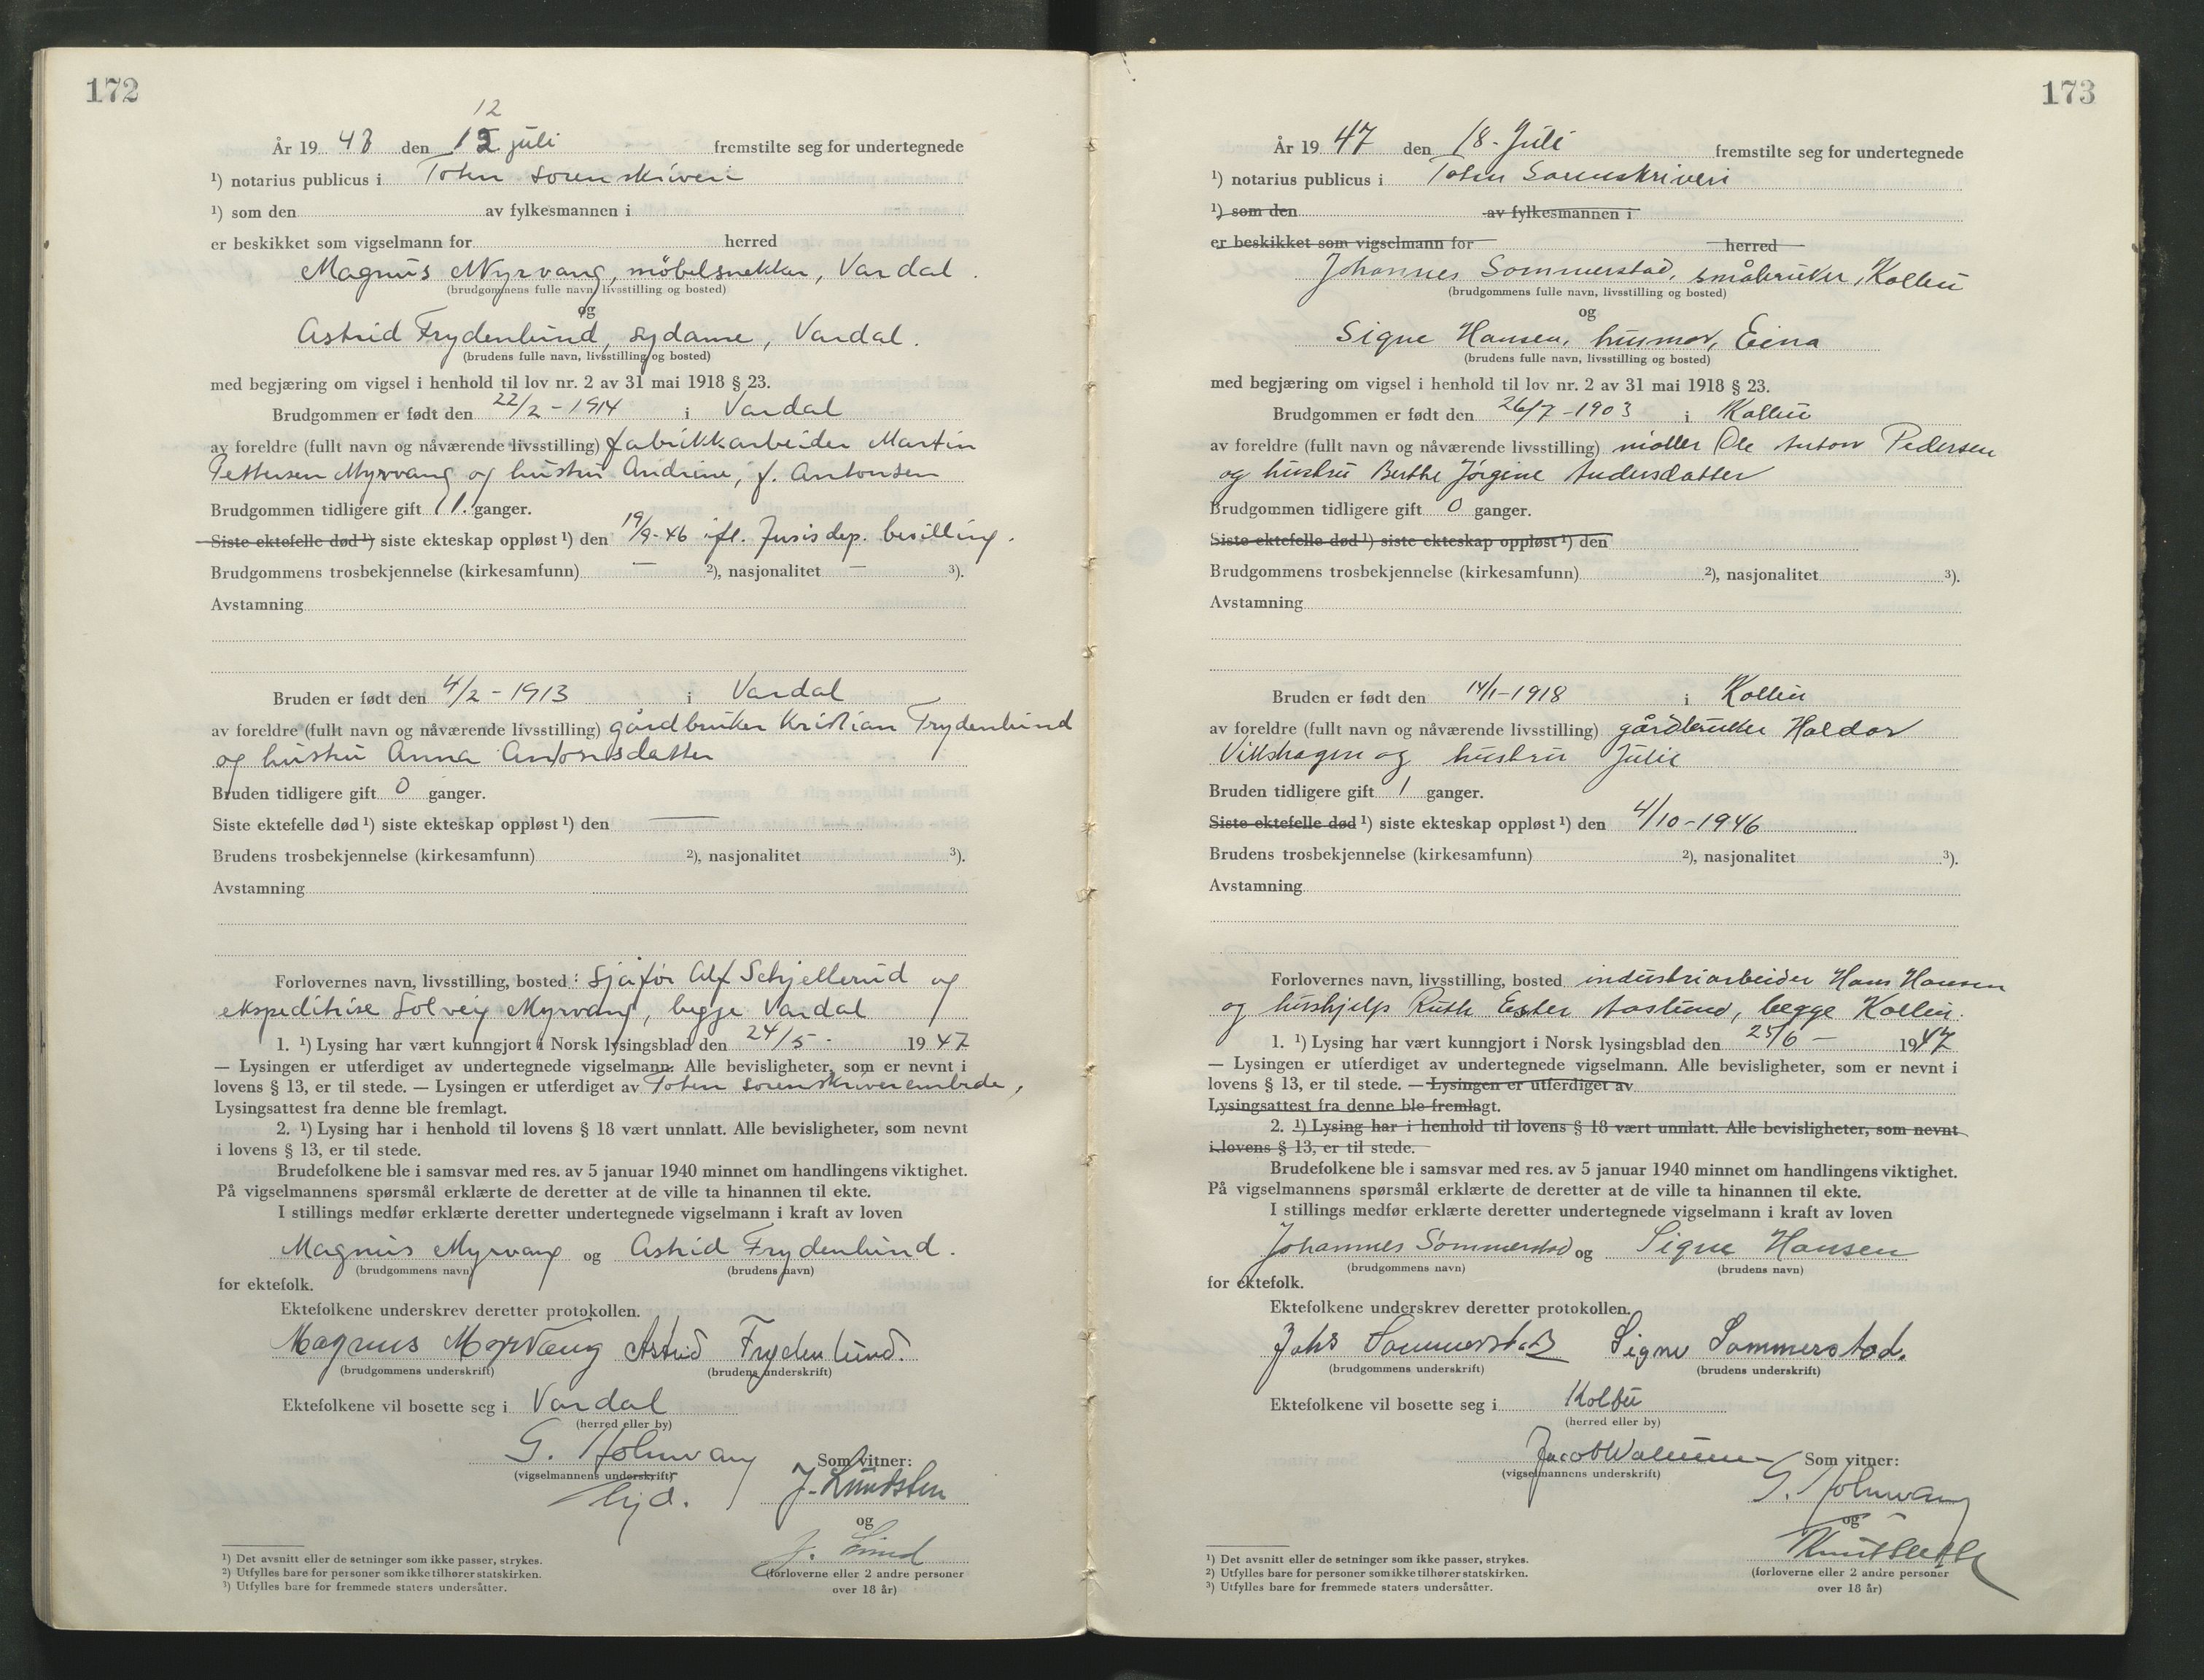 172
12
År 19 47 den 12 juli fremstilte seg for undertegnede
¹) notarius publicus i Toten sorenskriveri
¹) som den av fylkesmannen i
er beskikket som vigselmann for herred
Magnus Myrvang, møbelsnekker, Vardal.
(brudgommens fulle navn, livsstilling og bosted)
og
Astrid Frydenlund, sydame, Vardal.
(brudens fulle navn, livsstilling og bosted)
med begjæring om vigsel i henhold til lov nr. 2 av 31 mai 1918 § 23.
Brudgommen er født den 22/2 - 1914 i Vardal
av foreldre (fullt navn og nåværende livsstilling) fabrikkarbeider Martin
Pettersen Myrvang og hustru Andrine, f. Antonsen
Brudgommen tidligere gift 1. ganger.
Siste ektefelle død ¹) siste ekteskap oppløst ¹) den 19/9-46 ifl. Jusisdep. bevilling.
Brudgommens trosbekjennelse (kirkesamfunn) — ²), nasjonalitet — ³).
Avstamning
Bruden er født den 4/2 - 1913 i Vardal
av foreldre (fullt navn og nåværende livsstilling) gårdbruker Kristian Frydenlund
og hustru Anna Antonsdatter
Bruden tidligere gift 0 ganger.
Siste ektefelle død ¹) siste ekteskap oppløst ¹) den —
Brudens trosbekjennelse (kirkesamfunn) ²), nasjonalitet ³).
Avstamning
Forlovernes navn, livsstilling, bosted: sjåfør Alf Schjellerud og
ekspeditrise Solveig Myrvang, begge Vardal
1. ¹) Lysing har vært kunngjort i Norsk lysingsblad den 24/5 - 19 47
— Lysingen er utferdiget av undertegnede vigselmann. Alle bevisligheter, som er nevnt i
lovens § 13, er til stede. — Lysingen er utferdiget av Toten sorenskriverembede,
Lysingsattest fra denne ble fremlagt.
2. ¹) Lysing har i henhold til lovens § 18 vært unnlatt. Alle bevisligheter, som nevnt
i lovens § 13, er til stede.
Brudefolkene ble i samsvar med res. av 5 januar 1940 minnet om handlingens viktighet.
På vigselmannens spørsmål erklærte de deretter at de ville ta hinannen til ekte.
I stillings medfør erklærte deretter undertegnede vigselmann i kraft av loven
Magnus Myrvang og Astrid Frydenlund.
(brudgommens navn) (brudens navn)
for ektefolk.
Ektefolkene underskrev deretter protokollen.
Magnus Myrvang Astrid Frydenlund.
(brudgommens underskrift) (brudens underskrift)
Ektefolkene vil bosette seg i Vardal
(herred eller by)
G. Holmvang Som vitner:
(vigselmannens underskrift)
J. Lundsten
og
J. Lund
(forloverne eller 2 andre personer
over 18 år)
¹) Det avsnitt eller de setninger som ikke passer, strykes.
²) Utfylles bare for personer som ikke tilhører statskirken.
³) Utfylles bare for fremmede staters undersåtter.
173
År 19 47 den 18. Juli fremstilte seg for undertegnede
¹) notarius publicus i Toten Sorenskriveri
¹) som den av fylkesmannen i
er beskikket som vigselmann for herred
Johannes Sommerstad, småbruker, Kolbu
(brudgommens fulle navn, livsstilling og bosted)
og
Signe Hansen, husmor, Eina
(brudens fulle navn, livsstilling og bosted)
med begjæring om vigsel i henhold til lov nr. 2 av 31 mai 1918 § 23.
Brudgommen er født den 26/7 -1903 i Kolbu
av foreldre (fullt navn og nåværende livsstilling) møller Ole Anton Pedersen
og hustru Berthe Jørgine Andersdatter
Brudgommen tidligere gift 0 ganger.
Siste ektefelle død ¹) siste ekteskap oppløst ¹) den
Brudgommens trosbekjennelse (kirkesamfunn) ²), nasjonalitet ³).
Avstamning
Bruden er født den 14/1-1918 i Kolbu
av foreldre (fullt navn og nåværende livsstilling) gårdbruker Haldor
Vikshagen og hustru Julie
Bruden tidligere gift 1 ganger.
Siste ektefelle død ¹) siste ekteskap oppløst ¹) den 4/10-1946
Brudens trosbekjennelse (kirkesamfunn) ²), nasjonalitet ³).
Avstamning
Forlovernes navn, livsstilling, bosted industriarbeider Hans Hansen
og hushjelp Ruth Ester Aaslund, begge Kolbu.
1. ¹) Lysing har vært kunngjort i Norsk lysingsblad den 25/6 — 1947
— Lysingen er utferdiget av undertegnede vigselmann. Alle bevisligheter, som er nevnt i
lovens § 13, er til stede. — Lysingen er utferdiget av
Lysingsattest fra denne ble fremlagt.
2. ¹) Lysing har i henhold til lovens § 18 vært unnlatt. Alle bevisligheter, som nevnt
i lovens § 13, er til stede.
Brudefolkene ble i samsvar med res. av 5 januar 1940 minnet om handlingens viktighet.
På vigselmannens spørsmål erklærte de deretter at de ville ta hinannen til ekte.
I stillings medfør erklærte deretter undertegnede vigselmann i kraft av loven
Johannes Sommerstad og Signe Hansen
(brudgommens navn) (brudens navn)
for ektefolk.
Ektefolkene underskrev deretter protokollen.
Johs Sommerstad Signe Sommerstad.
(brudgommens underskrift) (brudens underskrift)
Ektefolkene vil bosette seg i Kolbu
(herred eller by)
Jacob Som vitner:
(vigselmannens underskrift)
G. Holmvang
og
(forloverne eller 2 andre personer
over 18 år)
¹) Det avsnitt eller de setninger som ikke passer, strykes.
²) Utfylles bare for personer som ikke tilhører statskirken.
³) Utfylles bare for fremmede staters undersåtter.